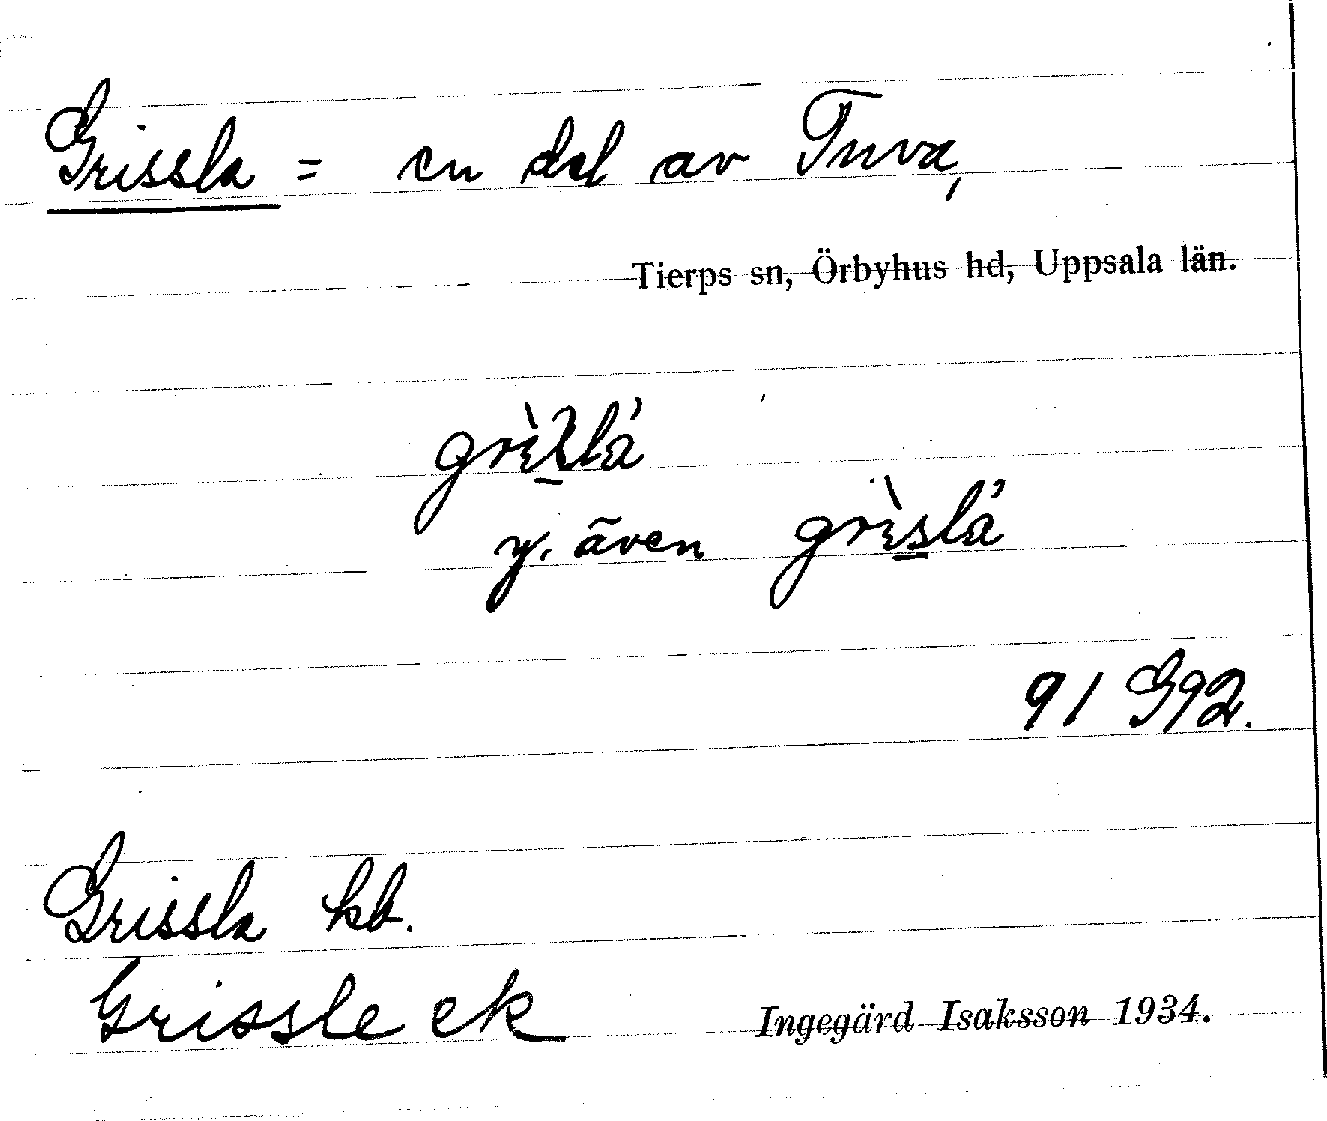 Grissla = en del av Tuva,
Tierps sn, Örbyhus hd, Uppsala län.
y. även grìslá
91 G92.
Grissla kb.
Grissle ek
Ingegärd Isaksson 1934.